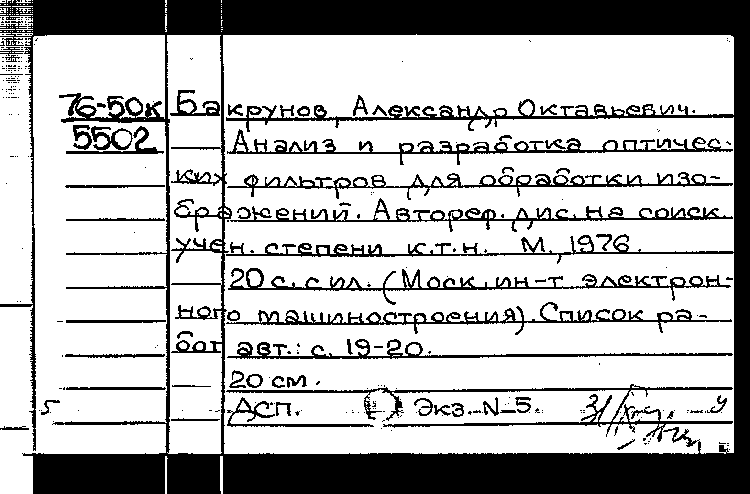 76-50к Бакрунов, Александр Октавьевич.
5502 Анализ и разработка оптичес-
ких фильтров для обработки изо-
бражений. Автореф. дис. на соиск.
учен. степени к.т.н. М., 1976.
20 с. с ил. (Моск. ин-т электрон-
ного машиностроения). Список ра-
бот авт.: с. 19-20.
20 см.
5 Асп. Экз. N 5.